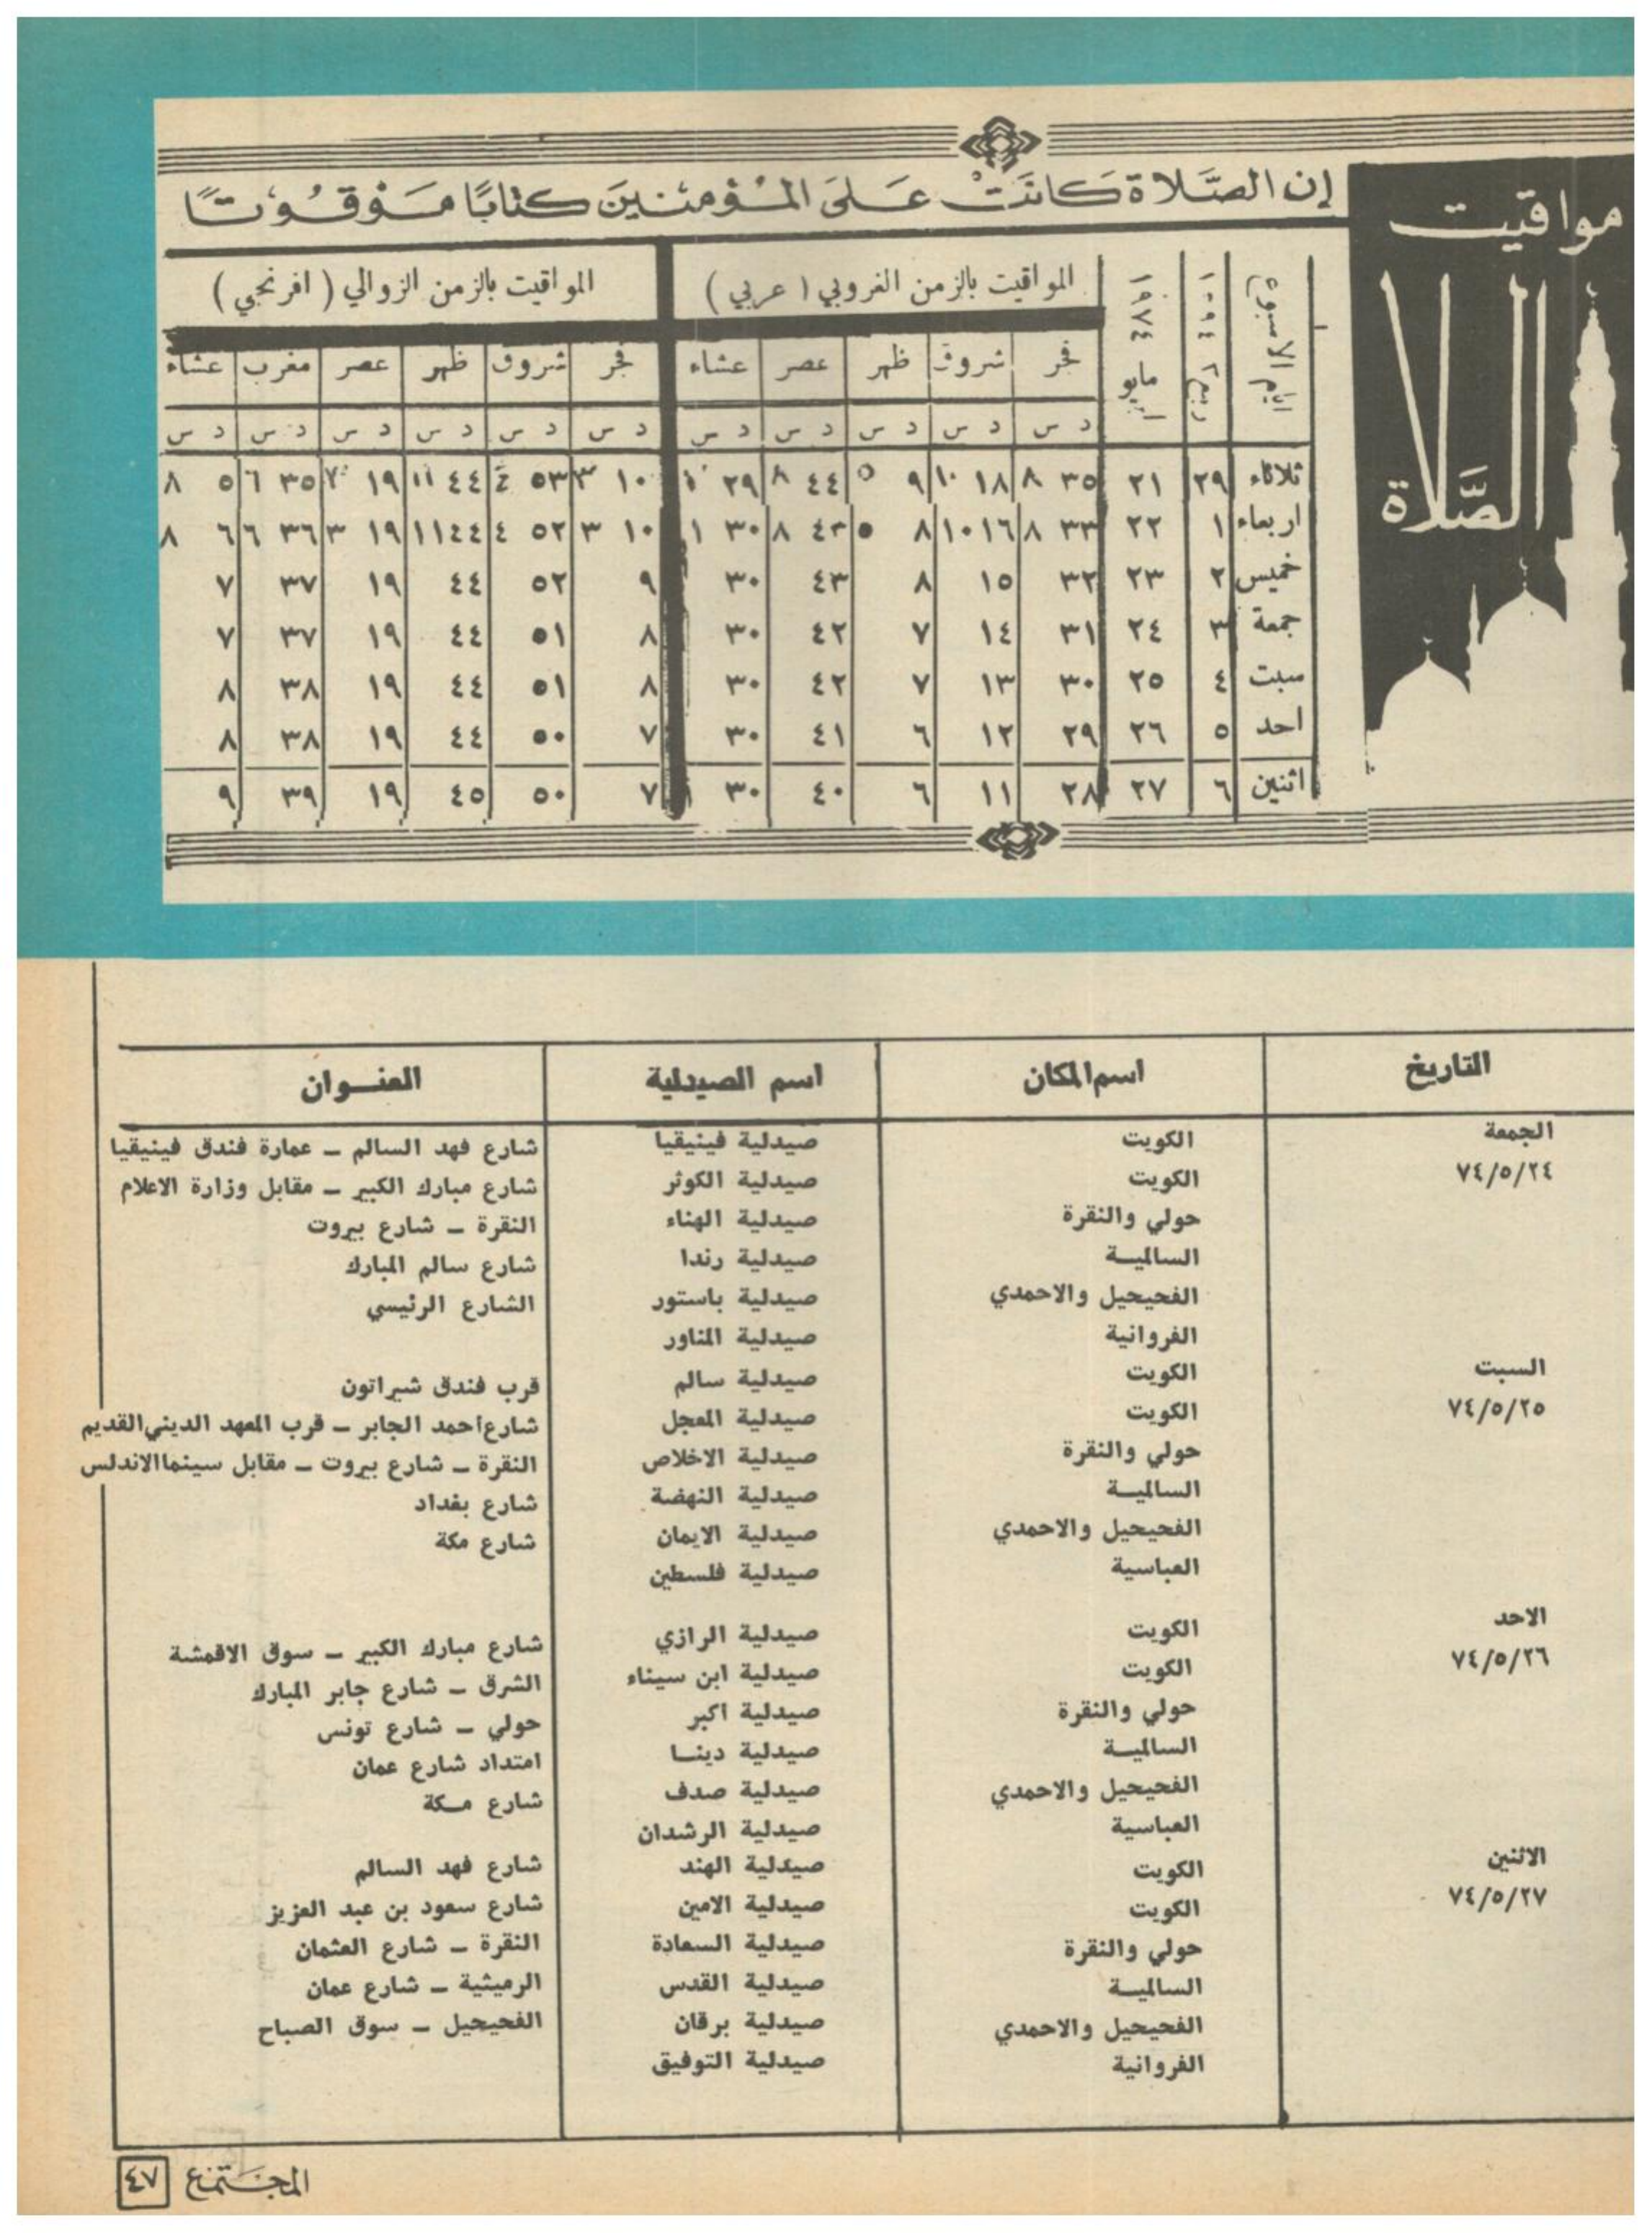 مواقيت
الصَّلاة
إن الصَّلاة كَانَتْ عَلَى المُؤمنينَ كتابًا مَوْقُوتًا
ايام الاسبوع | ربيع ٢ ١٠٩٤ | مايو ١٩٧٤ | المواقيت بالزمن الغروبي ( عربي ) | المواقيت بالزمن الزوالي ( افرنجي )
فجر | شروق | ظهر | عصر | عشاء | فجر | شروق | ظهر | عصر | مغرب | عشاء
د س | د س | د س | د س | د س | د س | د س | د س | د س | د س | د س
ثلاثاء | ٢٩ | ٢١ | ٣٥ ٨ | ١٨ ١٠ | ٩ ٥ | ٤٤ ٨ | ٢٩ ١ | ١٠ ٣ | ٥٣ ٤ | ٤٤ ١١ | ١٩ | ٣٥ ٦ | ٥ ٨
اربعاء | ١ | ٢٢ | ٣٣ ٨ | ١٦ ١٠ | ٨ ٥ | ٤٣ ٨ | ٣٠ ١ | ١٠ ٣ | ٥٢ ٤ | ٤٤ ١١ | ١٩ ٣ | ٣٦ ٦ | ٦ ٨
خميس | ٢ | ٢٣ | ٣٢ | ١٥ | ٨ | ٤٣ | ٣٠ | ٩ | ٥٢ | ٤٤ | ١٩ | ٣٧ | ٧
جمعة | ٣ | ٢٤ | ٣١ | ١٤ | ٧ | ٤٢ | ٣٠ | ٨ | ٥١ | ٤٤ | ١٩ | ٣٧ | ٧
سبت | ٤ | ٢٥ | ٣٠ | ١٣ | ٧ | ٤٢ | ٣٠ | ٨ | ٥١ | ٤٤ | ١٩ | ٣٨ | ٨
احد | ٥ | ٢٦ | ٢٩ | ١٢ | ٦ | ٤١ | ٣٠ | ٧ | ٥٠ | ٤٤ | ١٩ | ٣٨ | ٨
اثنين | ٦ | ٢٧ | ٢٨ | ١١ | ٦ | ٤٠ | ٣٠ | ٧ | ٥٠ | ٤٥ | ١٩ | ٣٩ | ٩
التاريخ | اسم المكان | اسم الصيدلية | العنــوان
الجمعة | الكويت | صيدلية فينيقيا | شارع فهد السالم – عمارة فندق فينيقيا
٧٤/٥/٢٤ | الكويت | صيدلية الكوثر | شارع مبارك الكبير – مقابل وزارة الاعلام
حولي والنقرة | صيدلية الهناء | النقرة – شارع بيروت
السالميــة | صيدلية رندا | شارع سالم المبارك
الفحيحيل والاحمدي | صيدلية باستور | الشارع الرئيسي
الفروانية | صيدلية المناور
السبت | الكويت | صيدلية سالم | قرب فندق شيراتون
٧٤/٥/٢٥ | الكويت | صيدلية المعجل | شارع احمد الجابر – قرب المعهد الديني القديم
حولي والنقرة | صيدلية الاخلاص | النقرة – شارع بيروت – مقابل سينما الاندلس
السالميــة | صيدلية النهضة | شارع بغداد
الفحيحيل والاحمدي | صيدلية الايمان | شارع مكة
العباسية | صيدلية فلسطين
الاحد | الكويت | صيدلية الرازي | شارع مبارك الكبير – سوق الاقمشة
٧٤/٥/٢٦ | الكويت | صيدلية ابن سيناء | الشرق – شارع جابر المبارك
حولي والنقرة | صيدلية اكبر | حولي – شارع تونس
السالميــة | صيدلية دينــا | امتداد شارع عمان
الفحيحيل والاحمدي | صيدلية صدف | شارع مــكة
العباسية | صيدلية الرشدان
الاثنين | الكويت | صيدلية الهند | شارع فهد السالم
٧٤/٥/٢٧ | الكويت | صيدلية الامين | شارع سعود بن عبد العزيز
حولي والنقرة | صيدلية السعادة | النقرة – شارع العثمان
السالميــة | صيدلية القدس | الرميثية – شارع عمان
الفحيحيل والاحمدي | صيدلية برقان | الفحيحيل – سوق الصباح
الفروانية | صيدلية التوفيق
المجتمع ٤٧